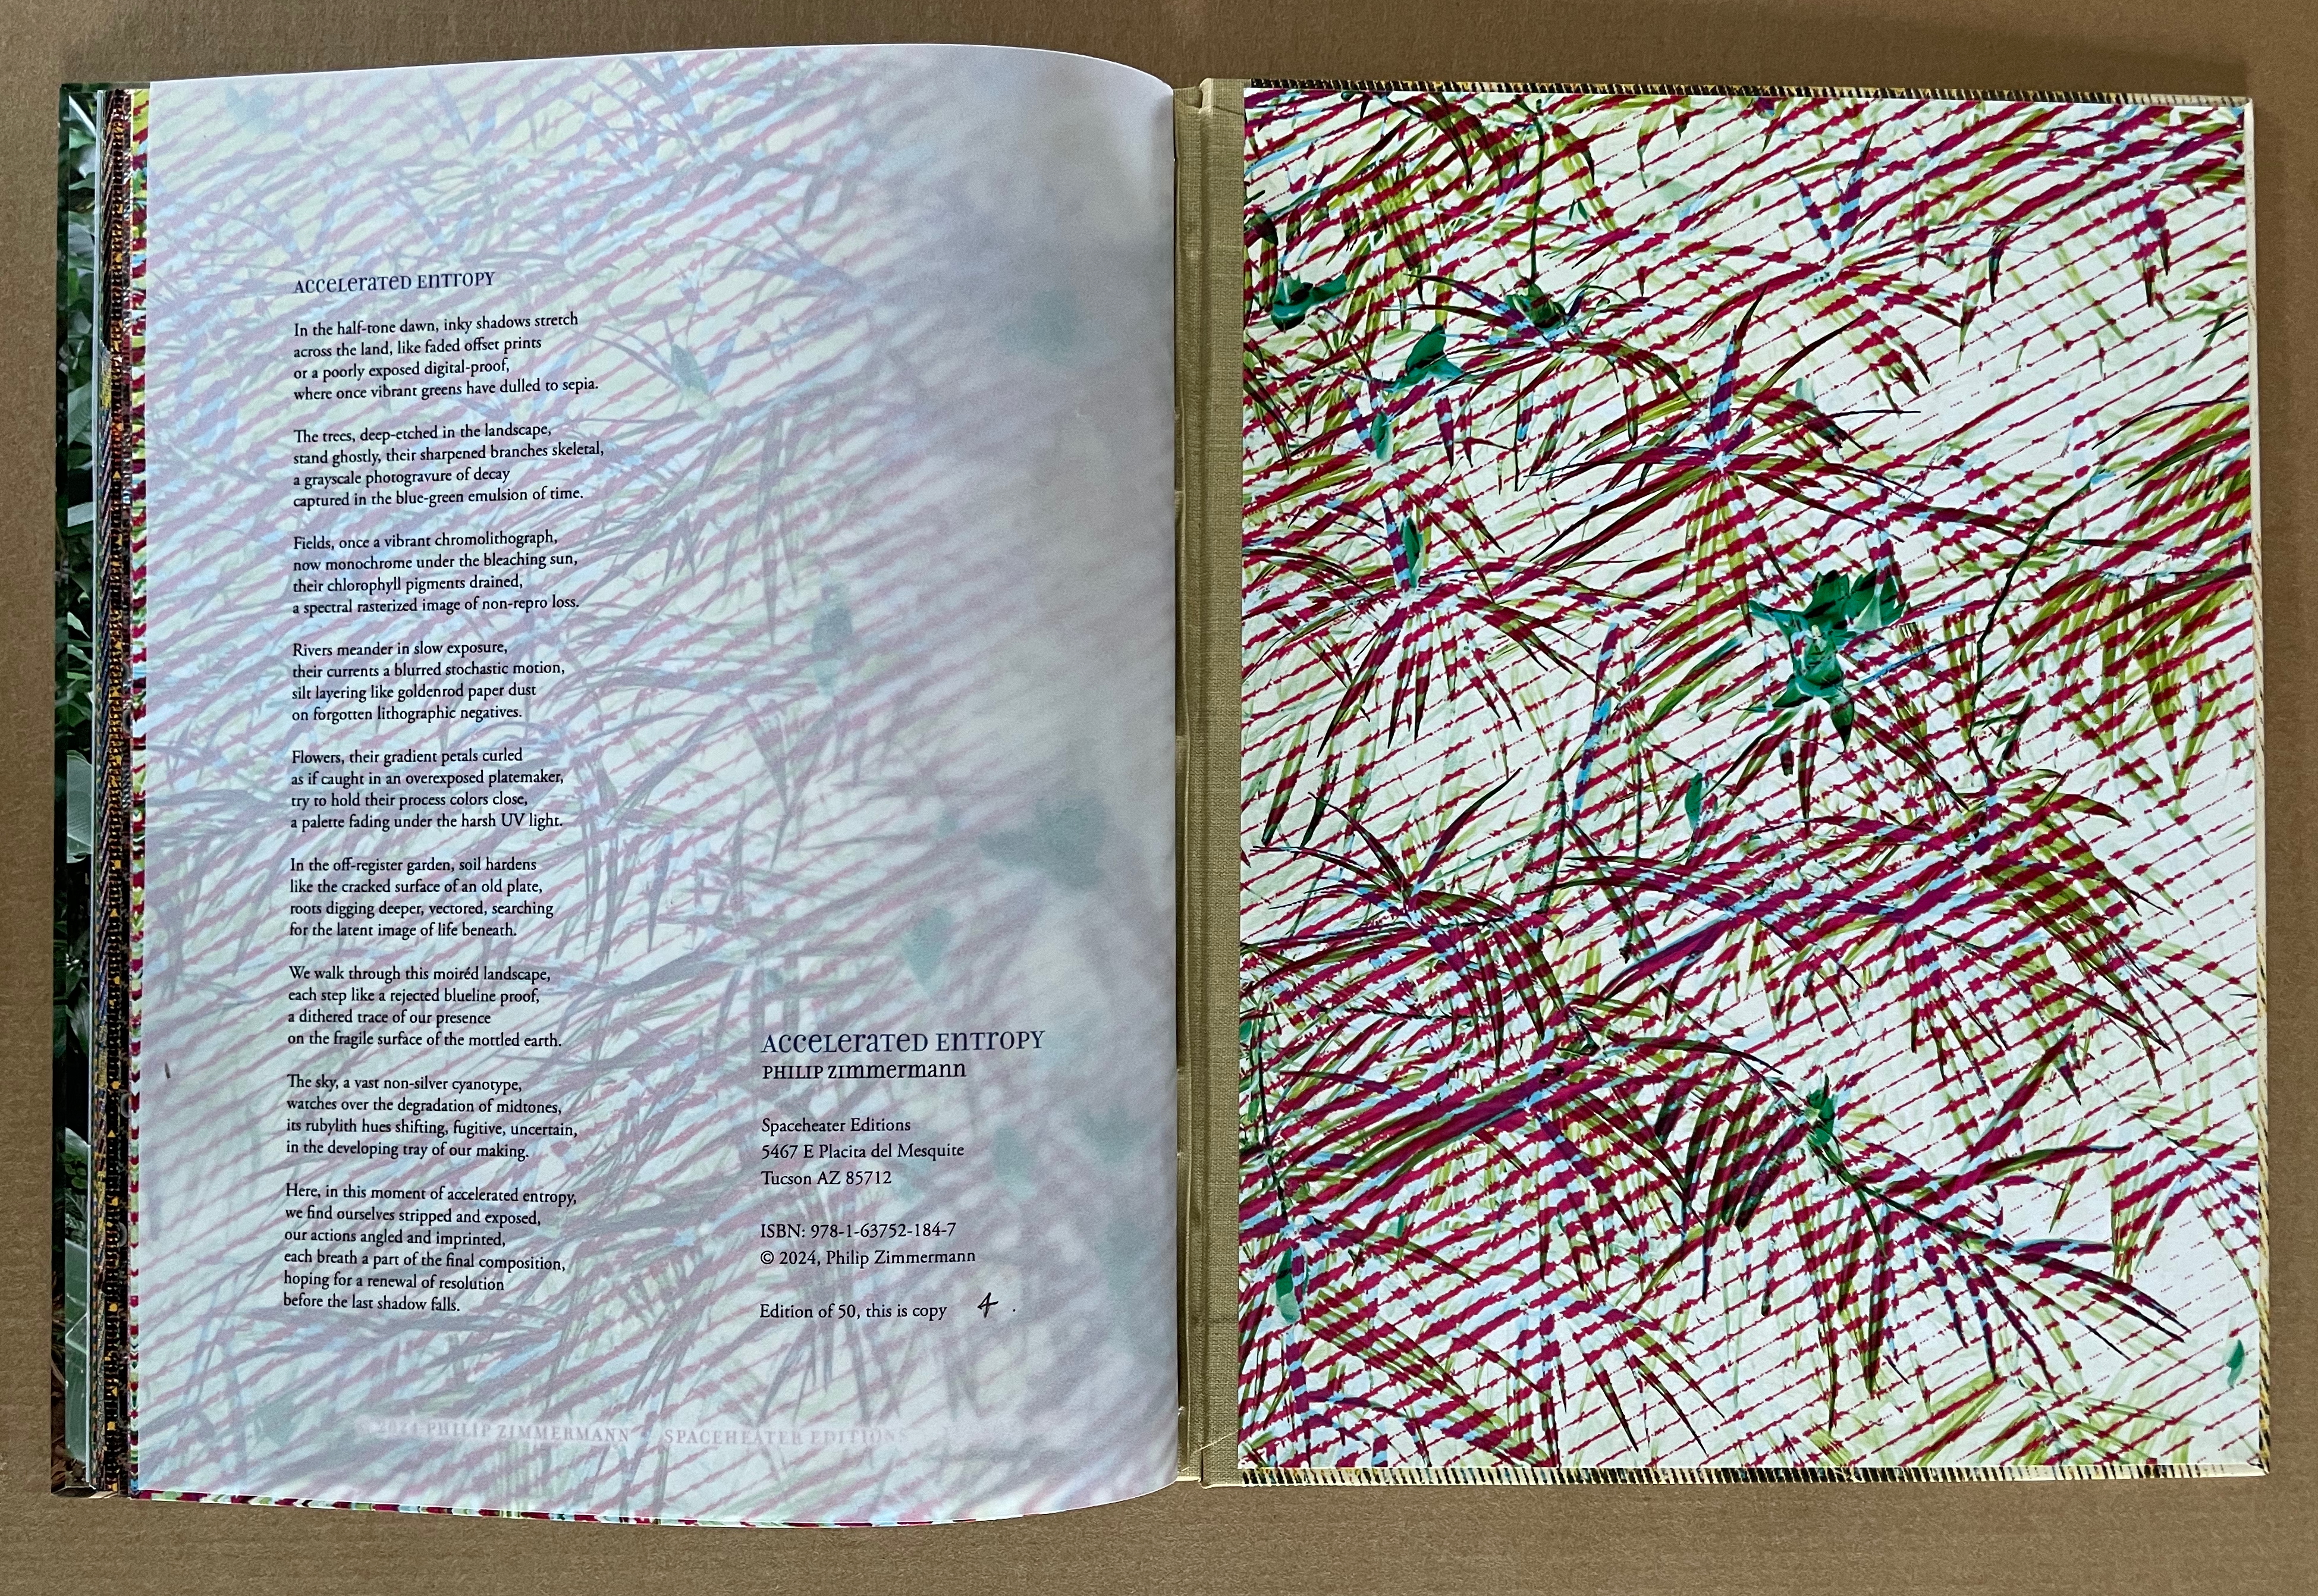 Accelerated Entropy
In the half-tone dawn, inky shadows stretch
across the land, like faded offset prints
or a poorly exposed digital-proof,
where once vibrant greens have dulled to sepia.
The trees, deep-etched in the landscape,
stand ghostly, their sharpened branches skeletal,
a grayscale photogravure of decay
captured in the blue-green emulsion of time.
Fields, once a vibrant chromolithograph,
now monochrome under the bleaching sun,
their chlorophyll pigments drained,
a spectral rasterized image of non-repro loss.
Rivers meander in slow exposure,
their currents a blurred stochastic motion,
silt layering like goldenrod paper dust
on forgotten lithographic negatives.
Flowers, their gradient petals curled
as if caught in an overexposed platemaker,
try to hold their process colors close,
a palette fading under the harsh UV light.
In the off-register garden, soil hardens
like the cracked surface of an old plate,
roots digging deeper, vectored, searching
for the latent image of life beneath.
We walk through this moiréd landscape,
each step like a rejected blueline proof,
a dithered trace of our presence
on the fragile surface of the mottled earth.
The sky, a vast non-silver cyanotype,
watches over the degradation of midtones,
its rubylith hues shifting, fugitive, uncertain,
in the developing tray of our making.
Here, in this moment of accelerated entropy,
we find ourselves stripped and exposed,
our actions angled and imprinted,
each breath a part of the final composition,
hoping for a renewal of resolution
before the last shadow falls.
Accelerated Entropy
Philip Zimmermann
Spaceheater Editions
5467 E Placita del Mesquite
Tucson AZ 85712
ISBN: 978-1-63752-184-7
© 2024, Philip Zimmermann
Edition of 50, this is copy 4.
2024 PHILIP ZIMMERMANN SPACEHEATER EDITIONS